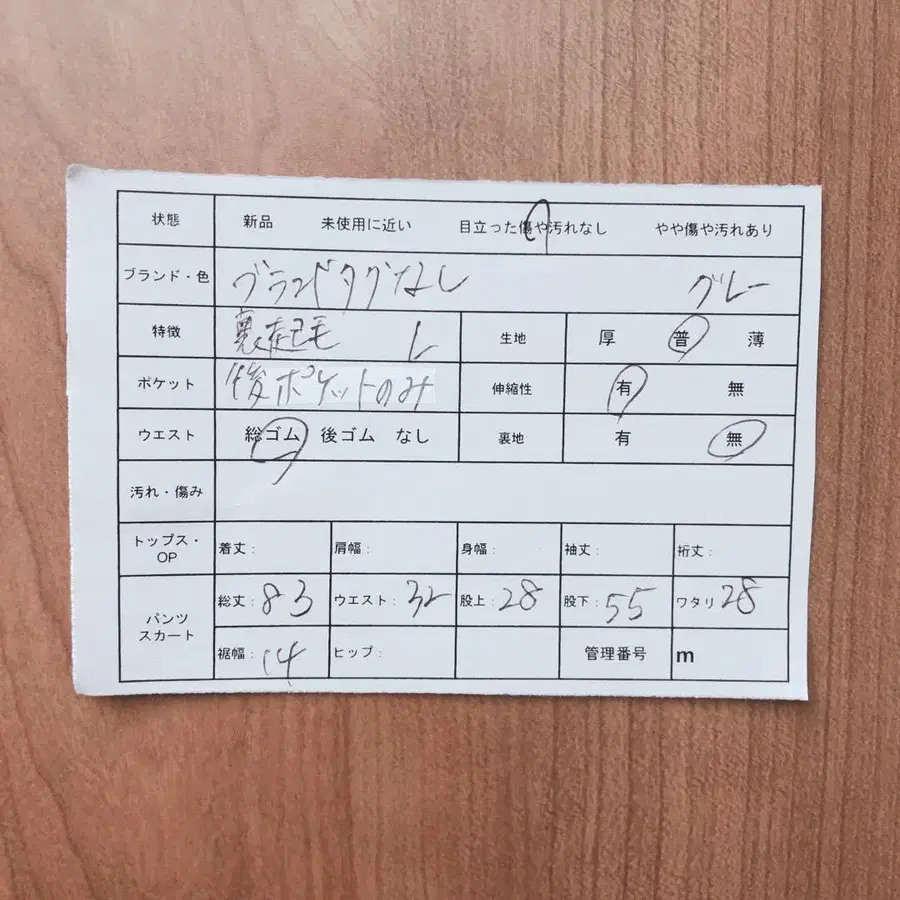 状態 新品 未使用に近い 目立った傷や汚れなし やや傷や汚れあり
ブランド・色 ブランドタグなし グレー
特徴 裏起毛 L 生地 厚 普 薄
ポケット 後ポケットのみ 伸縮性 有 無
ウエスト 総ゴム 後ゴム なし 裏地 有 無
汚れ・傷み
トップス・OP 着丈: 肩幅: 身幅: 袖丈: 裄丈:
パンツ スカート 総丈:83 ウエスト:32 股上:28 股下:55 ワタリ 28
裾幅:14 ヒップ: 管理番号 m